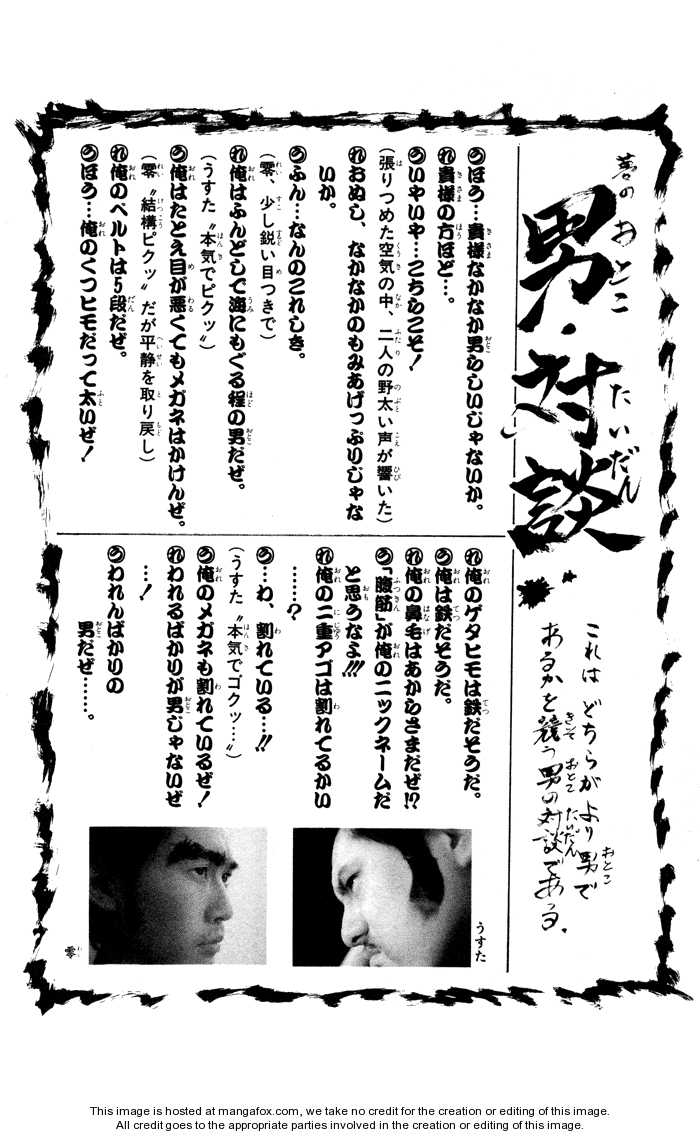 夢の
男・対談
これは どちらが より 男で
あるかを 競う 男の 対談である.
う ほう…貴様なかなか男らしいじゃないか。
れ 貴様の方ほど…。
う いやいや…こちらこそ！
（張りつめた空気の中、二人の野太い声が響いた）
れ おぬし、なかなかのもみあげっぷりじゃな
いか。
う ふん…なんのこれしき。
（零、少し鋭い目つきで）
れ 俺はふんどしで海にもぐる程の男だぜ。
（うすた〝本気でピクッ〟）
う 俺はたとえ目が悪くてもメガネはかけんぜ。
（零〝結構ピクッ〟だが平静を取り戻し）
れ 俺のベルトは5段だぜ。
う ほう…俺のくつヒモだって太いぜ！
れ 俺のゲタヒモは鉄だそうだ。
う 俺は鉄だそうだ。
れ 俺の鼻毛はあからさまだぜ!?
う 「腹筋」が俺のニックネームだ
と思うなよ!!!
れ 俺の二重アゴは割れてるかい
……？
う …わ、割れている…!!
（うすた〝本気でゴクッ…〟）
う 俺のメガネも割れているぜ！
れ われるばかりが男じゃないぜ
…！
う われんばかりの
男だぜ……。
うすた
零
This image is hosted at mangafox.com, we take no credit for the creation or editing of this image.
All credit goes to the appropriate parties involved in the creation or editing of this image.